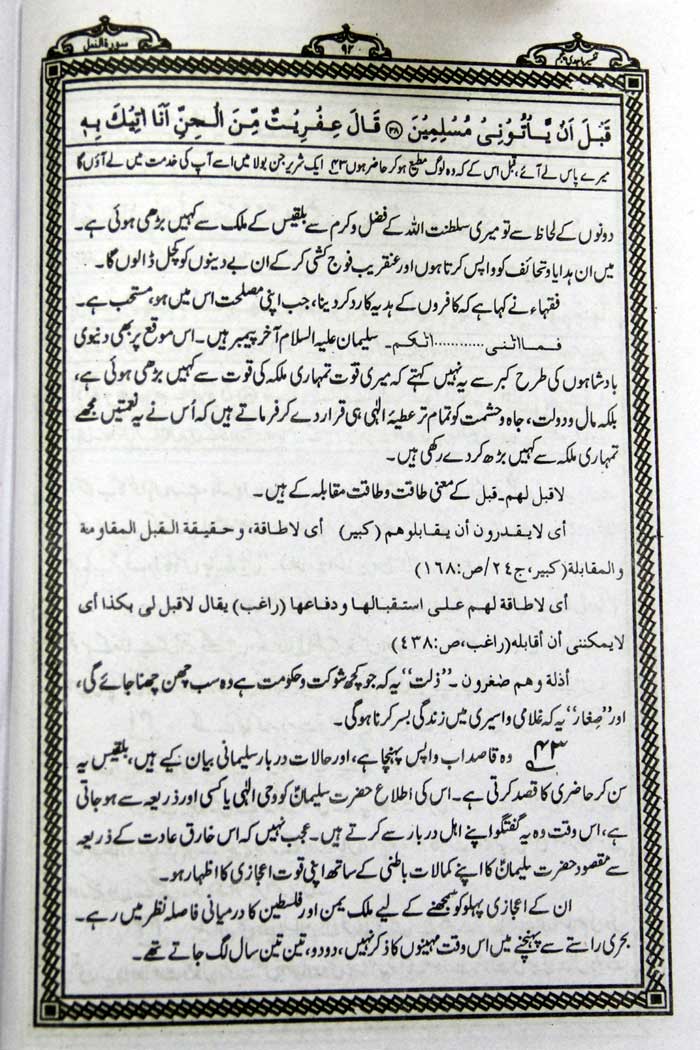 سورة النمل
۹۲
تفسیر ماجدی پنجم
قَبْلَ اَنْ يَّاْتُوْنِيْ مُسْلِمِيْنَ ﴿۳۸﴾ قَالَ عِفْرِيْتٌ مِّنَ الْجِنِّ اَنَا اٰتِيْكَ بِهٖ
میرے پاس لے آئے، قبل اس کے کہ وہ لوگ مطیع ہو کر حاضر ہوں ۴۳ ایک شریر جن بولا میں اسے آپ کی خدمت میں لے آؤں گا
دونوں کے لحاظ سے تو میری سلطنت اللہ کے فضل و کرم سے بلقیس کے ملک سے کہیں بڑھی ہوئی ہے۔
میں ان ہدایا و تحائف کو واپس کرتا ہوں اور عنقریب فوج کشی کر کے ان بے دینوں کو کچل ڈالوں گا۔
فقہاء نے کہا ہے کہ کافروں کے ہدیہ کا رد کر دینا، جب اپنی مصلحت اس میں ہو، مستحب ہے۔
فما اٰتٰنی............اتٰکم۔ سلیمان علیہ السلام آخر پیمبر ہیں۔ اس موقع پر بھی دنیوی
بادشاہوں کی طرح کبر سے یہ نہیں کہتے کہ میری قوت تمہاری ملکہ کی قوت سے کہیں بڑھی ہوئی ہے،
بلکہ مال و دولت، جاہ و حشمت کو تمام تر عطیۂ الٰہی ہی قرار دے کر فرماتے ہیں کہ اُس نے یہ نعمتیں مجھے
تمہاری ملکہ سے کہیں بڑھ کر دے رکھی ہیں۔
لا قبل لهم۔ قبل کے معنی طاقت و طاقت مقابلہ کے ہیں۔
أى لايقدرون أن يقابلوهم (كبير) أى لاطاقة، وحقيقة القبل المقاومة
والمقابلة (كبير، ج٢٤/ص:١٦٨)
أى لاطاقة لهم على استقبالها ودفاعها (راغب) يقال لا قبل لى بكذا أى
لايمكننى أن أقابله (راغب، ص:٤٣٨)
أذلة وهم صٰغرون۔ ”ذلت“ یہ کہ جو کچھ شوکت و حکومت ہے وہ سب چھن چھنا جائے گی،
اور ”صِغار“ یہ کہ غلامی و اسیری میں زندگی بسر کرنا ہوگی۔
۴۳ وہ قاصد اب واپس پہنچا ہے، اور حالات دربار سلیمانی بیان کیے ہیں، بلقیس یہ
سن کر حاضری کا قصد کرتی ہے۔ اس کی اطلاع حضرت سلیمانؑ کو وحی الٰہی یا کسی اور ذریعہ سے ہو جاتی
ہے، اس وقت وہ یہ گفتگو اپنے اہل دربار سے کرتے ہیں۔ عجب نہیں کہ اس خارق عادت کے ذریعہ
سے مقصود حضرت سلیمانؑ کا اپنے کمالات باطنی کے ساتھ اپنی قوت اعجازی کا اظہار ہو۔
ان کے اعجازی پہلو کو سمجھنے کے لیے ملک یمن اور فلسطین کا درمیانی فاصلہ نظر میں رہے۔
بحری راستے سے پہنچنے میں اس وقت مہینوں کا ذکر نہیں، دو دو، تین تین سال لگ جاتے تھے۔